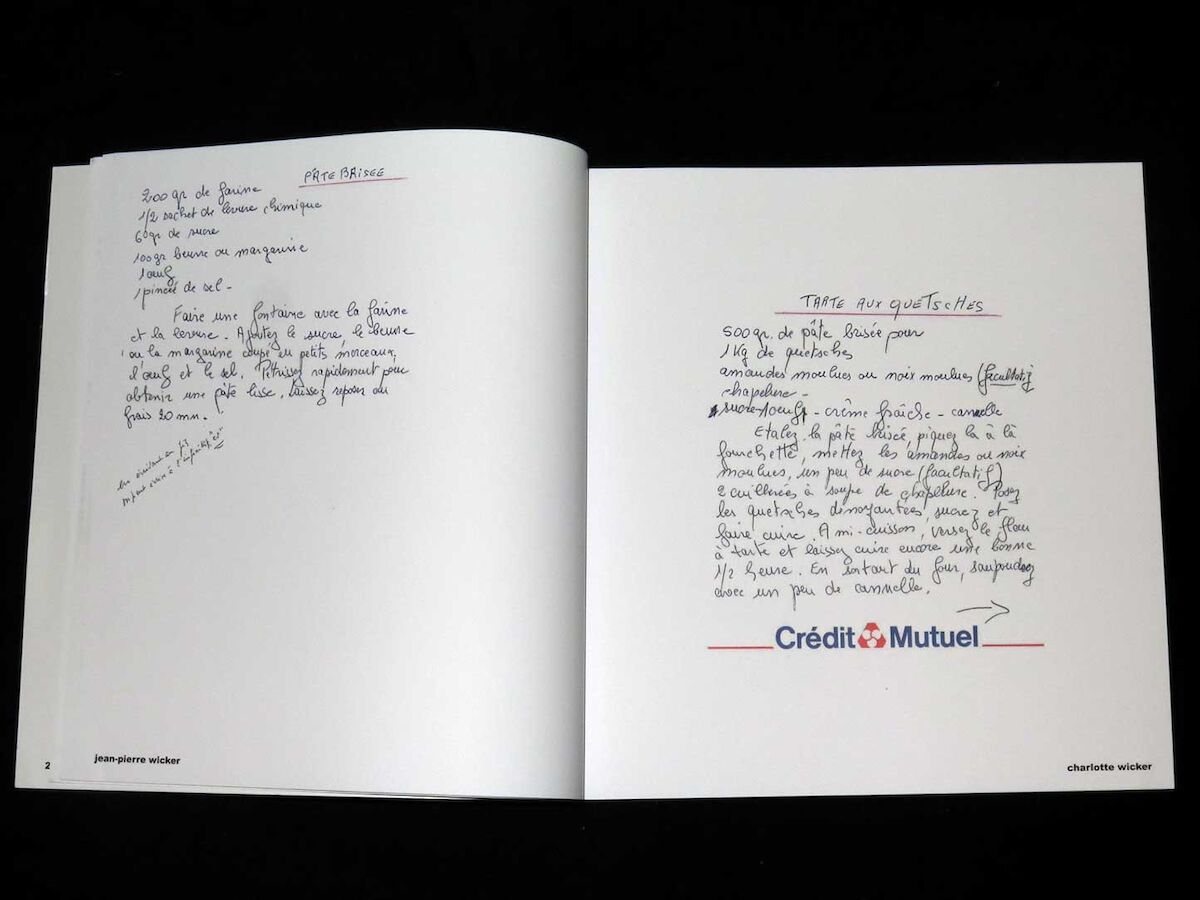 PÂTE BRISEE
200 gr de farine
1/2 sachet de levure chimique
60gr de sucre
100gr beurre ou margarine
1 œuf
1 pincée de sel -
Faire une fontaine avec la farine
et la levure. Ajoutez le sucre, le beurre
ou la margarine coupé en petits morceaux,
l'œuf et le sel. Pétrissez rapidement pour
obtenir une pâte lisse. Laissez reposer au
frais 20 mn.
en
à l'infinitif "er"
2
jean-pierre wicker
TARTE AUX QUETSCHES
500gr. de pâte brisée pour
1 Kg de quetsches
amandes moulues ou noix moulues (facultatif)
chapelure -
sucre - 1 oeuf - crème fraîche - cannelle
Etalez la pâte brisée, piquez la à la
fourchette, mettez les amandes ou noix
moulues, un peu de sucre (facultatif)
2 cuillerées à soupe de chapelure. Posez
les quetsches dénoyautées, sucrez et
faire cuire. A mi-cuisson, versez le flan
à tarte et laissez cuire encore une bonne
1/2 heure. En sortant du four, saupoudrez
avec un peu de cannelle.
Crédit Mutuel
charlotte wicker